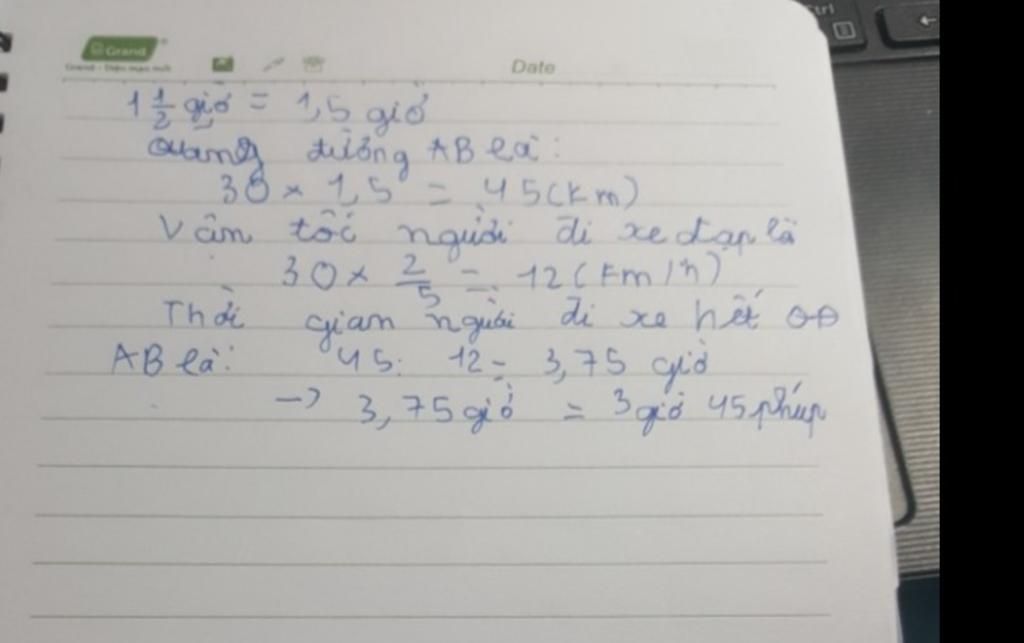 Grand
Date
Ctrl
1 1/2 giờ = 1,5 giờ
Quãng đường AB là:
30 × 1,5 = 45 (km)
Vận tốc người đi xe đạp là
30 × 2/5 = 12 (km/h)
Thời gian người đi xe hết QĐ
AB là: 45 : 12 = 3,75 giờ
→ 3,75 giờ = 3 giờ 45 phút